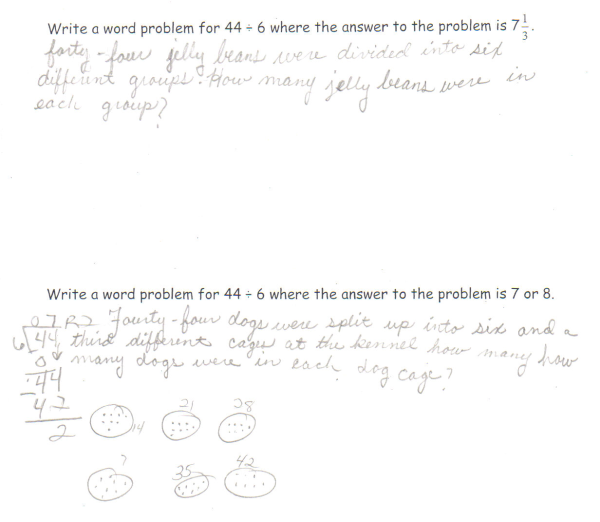 Write a word problem for 44 ÷ 6 where the answer to the problem is 7 1/3.
forty-four jelly beans were divided into six
different groups. How many jelly beans were in
each group?
Write a word problem for 44 ÷ 6 where the answer to the problem is 7 or 8.
07 R2 Fourty-four dogs were split up into six and a
6 44 third different cages at the kennel how many how
0 many dogs were in each dog cage?
44
- 42
2
14 21 28
7 35 42